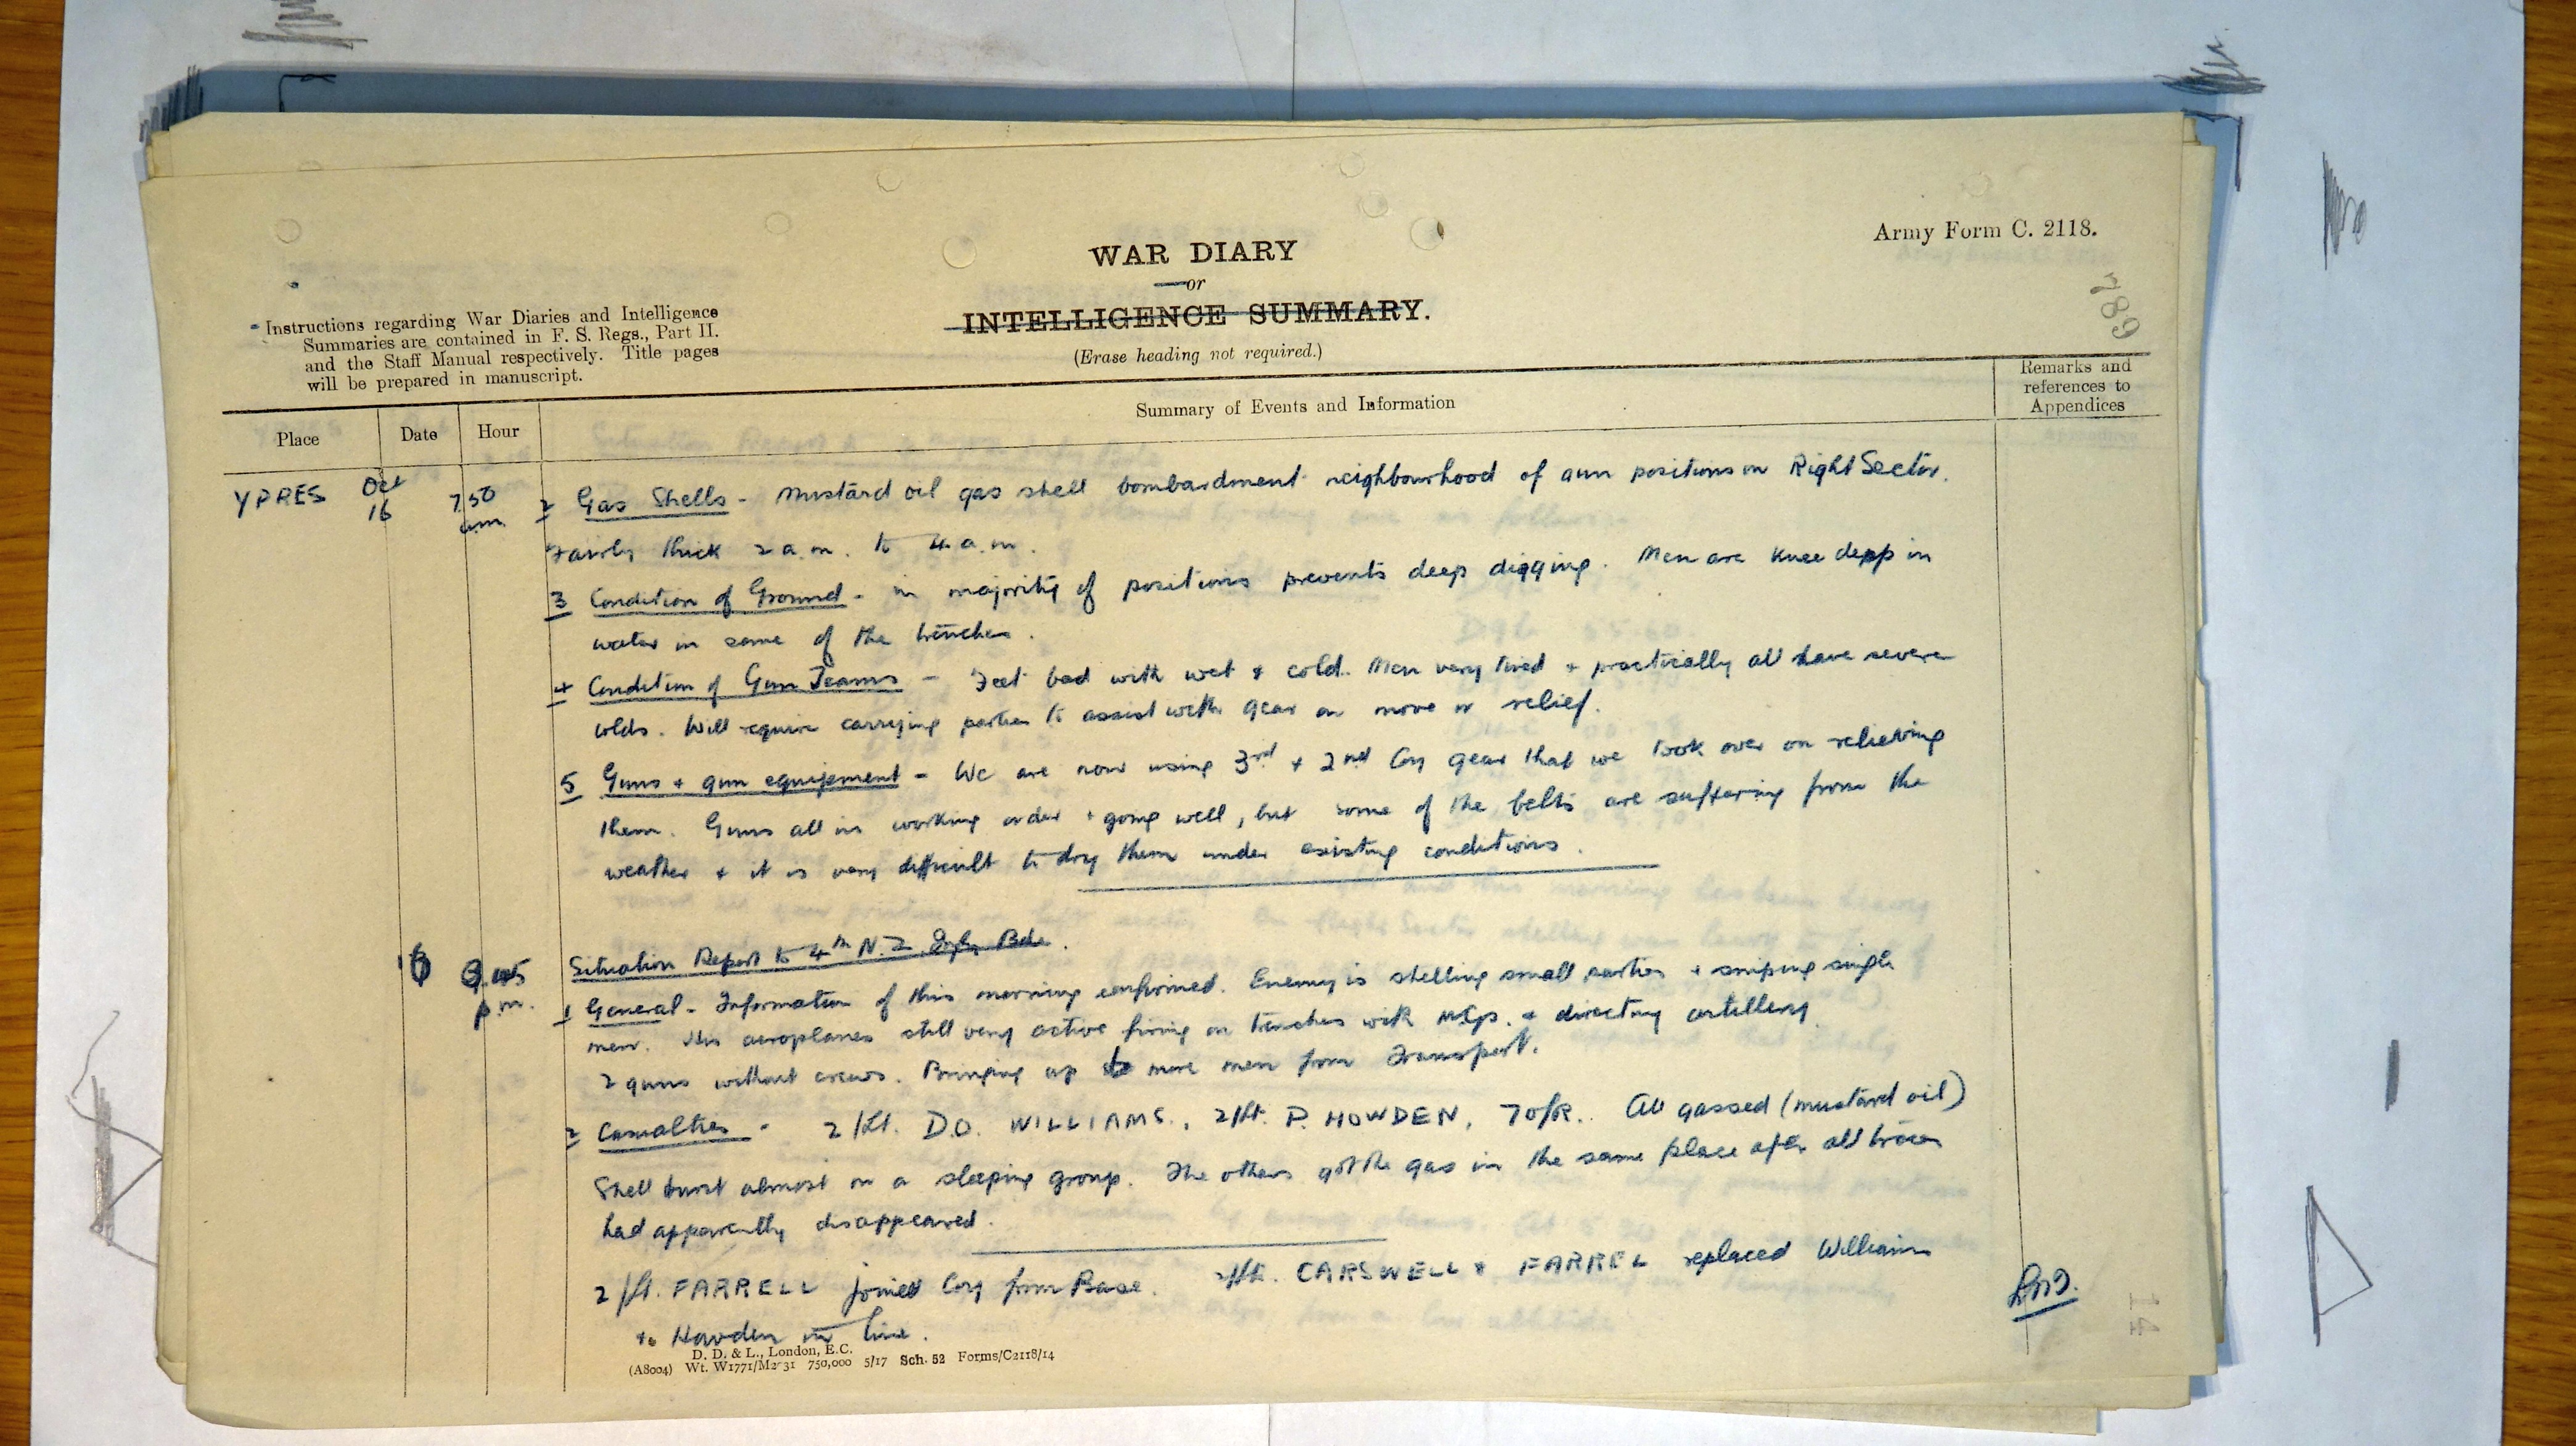 Army Form C. 2118.
WAR DIARY
or
INTELLIGENCE SUMMARY.
(Erase heading not required.)
789
Instructions regarding War Diaries and Intelligence
Summaries are contained in F. S. Regs., Part II.
and the Staff Manual respectively. Title pages
will be prepared in manuscript.
Place
Date
Hour
Summary of Events and Information
Remarks and
references to
Appendices
YPRES Oct 16 7.50 am. 2 Gas Shells - Mustard oil gas shell bombardment neighbourhood of gun positions in Right Sector.
Fairly thick 2 a.m. to 4 a.m.
3 Condition of Ground - in majority of positions prevents deep digging. Men are knee deep in
water in some of the trenches.
4 Condition of Gun Teams - Feet bad with wet & cold. Men very tired & practically all have severe
colds. Will require carrying parties to assist with gear on move or relief.
5 Guns & gun equipment - We are now using 3rd & 2nd Coy gear that we took over on relieving
them. Guns all in working order & going well, but some of the belts are suffering from the
weather & it is very difficult to dry them under existing conditions.
16 p.m. Situation Report to 4th N.Z. Inf. Bde.
1 General - Information of this morning confirmed. Enemy is shelling small parties & sniping single
men. His aeroplanes still very active firing on trenches with M.Gs. & directing artillery
2 guns without crews. Bringing up more men from Transport.
2 Casualties - 2/Lt. D.O. WILLIAMS, 2/Lt. P. HOWDEN, 7 O/R. All gassed (mustard oil)
Shell burst almost on a sleeping group. The others got the gas in the same place after all traces
had apparently disappeared.
2/Lt. FARRELL joined Coy from Base. 2/Lt. CARSWELL & FARREL replaced Williams
& Howden in line.
D. D. & L., London, E.C.
(A8004) Wt. W1771/M2031 750,000 5/17 Sch. 52 Forms/C2118/14
14